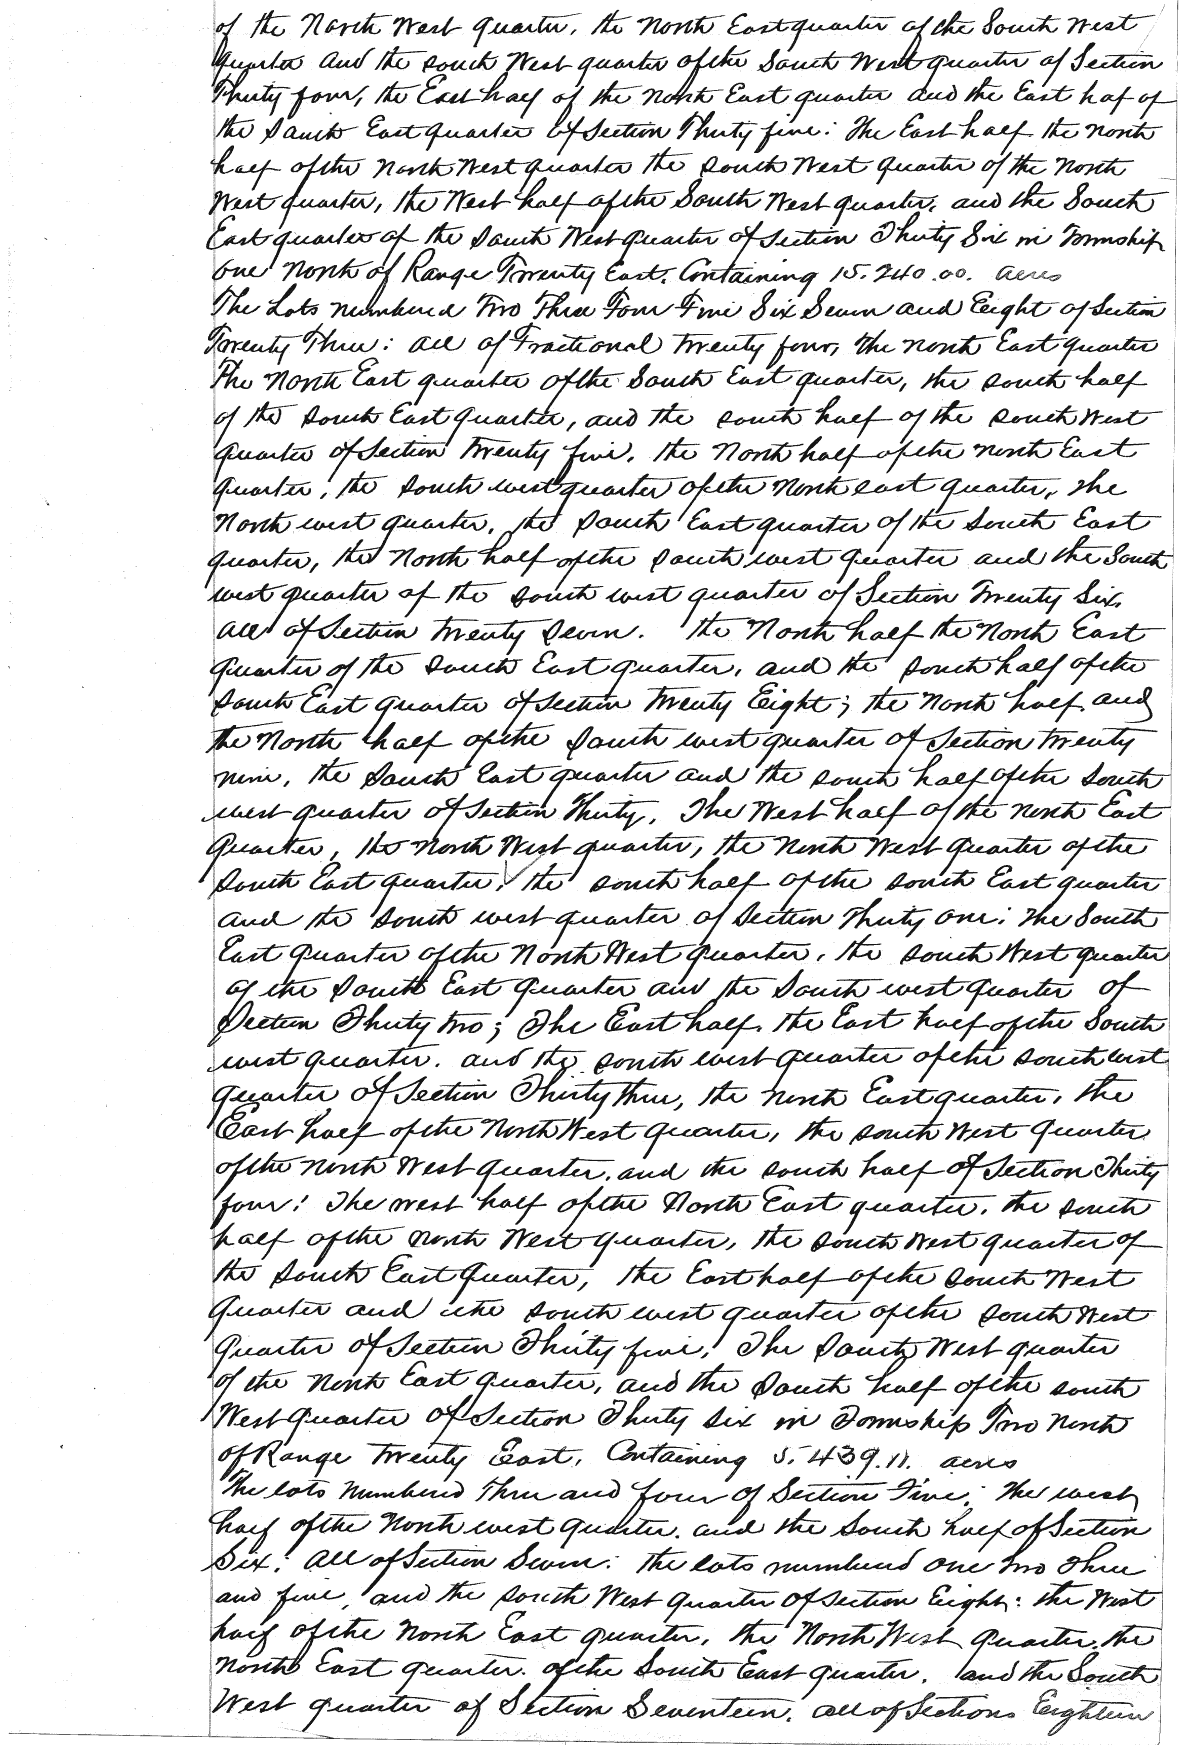 of the North West quarter, the North East quarter of the South West
quarter and the south West quarter of the South West quarter of Section
Thirty four, the East half of the North East quarter and the East haf of
the South East quarter of Section Thirty five: The East half the North
half of the North West quarter the South West quarter of the North
West quarter, the West half of the South West quarter, and the South
East quarter of the South West quarter of Section Thirty Six in Township
one North of Range Twenty East. Containing 15.240.00. acres
The Lots numbered Two Three Four Five Six Seven and Eight of Section
Twenty Three: all of Fractional Twenty four, the North East quarter
The North East quarter of the South East quarter, the south half
of the South East quarter, and the south half of the south West
quarter of Section Twenty five. the North half of the North East
quarter, the south west quarter of the North east quarter, the
North west quarter, the South East quarter of the South East
quarter, the North half of the South west quarter and the South
west quarter of the south west quarter of Section Twenty Six.
all of Section Twenty Seven. the North half the North East
quarter of the South East quarter, and the south half of the
South East quarter of Section Twenty Eight; the North half and
the North half of the South west quarter of Section Twenty
nine, the South East quarter and the south half of the South
west quarter of Section Thirty. The West half of the North East
Quarter, the North West quarter, the North West quarter of the
South East quarter, the south half of the south East quarter
and the South west quarter of Section Thirty one: The South
East quarter of the North West quarter, the south West quarter
of the South East Quarter and the South west quarter of
Section Thirty two; The East half, the East half of the South
west quarter, and the south west quarter of the south west
quarter of Section Thirty three, the North East quarter, the
East half of the North West quarter, the south West quarter
of the North West quarter, and the south half of Section Thirty
four: The west half of the North East quarter, the south
half of the North West quarter, the South West quarter of
the South East Quarter, the East half of the South West
Quarter and the south west quarter of the South West
Quarter of Section Thirty five, The South West quarter
of the North East quarter, and the South half of the south
West quarter of Section Thirty Six in Township Two North
of Range Twenty East. Containing 5.439.11. acres
The lots numbered Three and four of Section Five; The west
half of the North west quarter, and the South half of Section
Six: All of Section Seven: the lots numbered One Two Three
and five, and the South West quarter of Section Eight: the West
half of the North East quarter, the North West quarter, the
North East quarter of the South East quarter, and the South
West quarter of Section Seventeen. all of Sections Eighteen